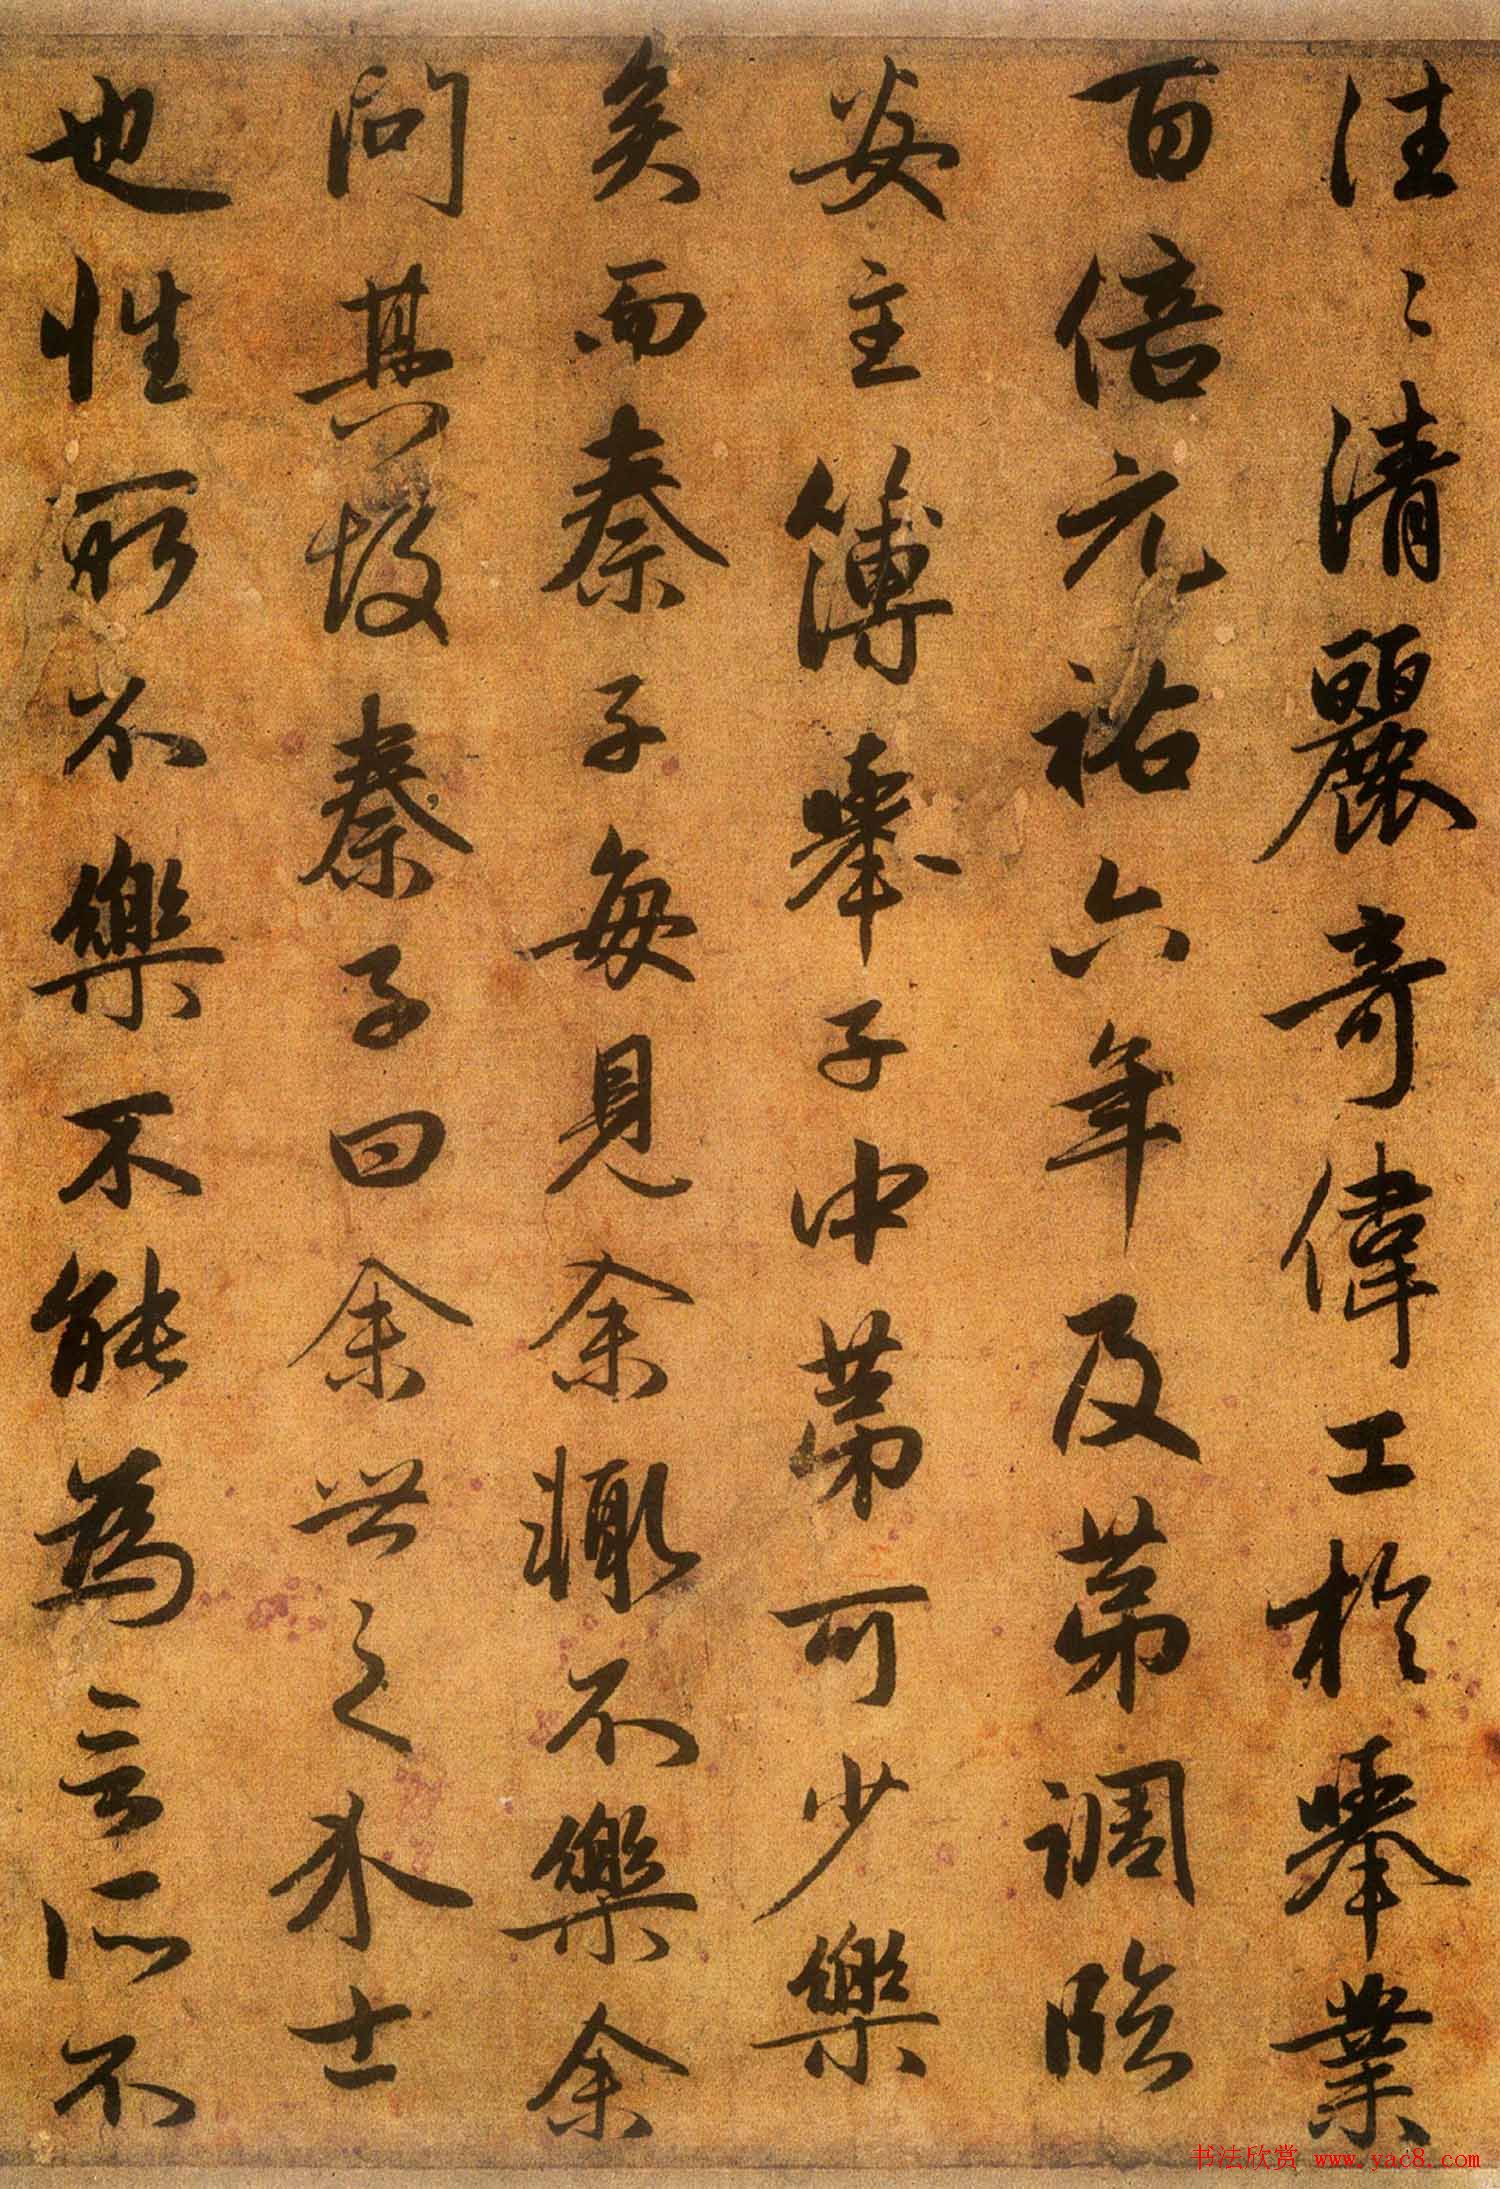 往〻清麗奇偉工於舉業
百倍元祐六年及第調臨
安主簿舉子中第可少樂
矣而秦子每見余輒不樂余
問其故秦子曰余世之介士
也性所不樂不能為言所不
书法欣赏 www.yac8.com